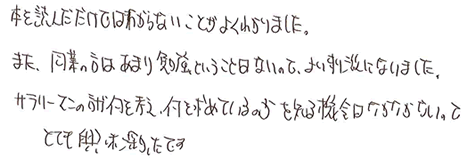 本を読んだだけではわからないことがよくわかりました。
また、同業の話はあまり勉強ということはないので、よい刺激になりました。
サラリーマンの方が何を考え、何を求めているのかを知る機会はなかなかないので
とても興味深かったです